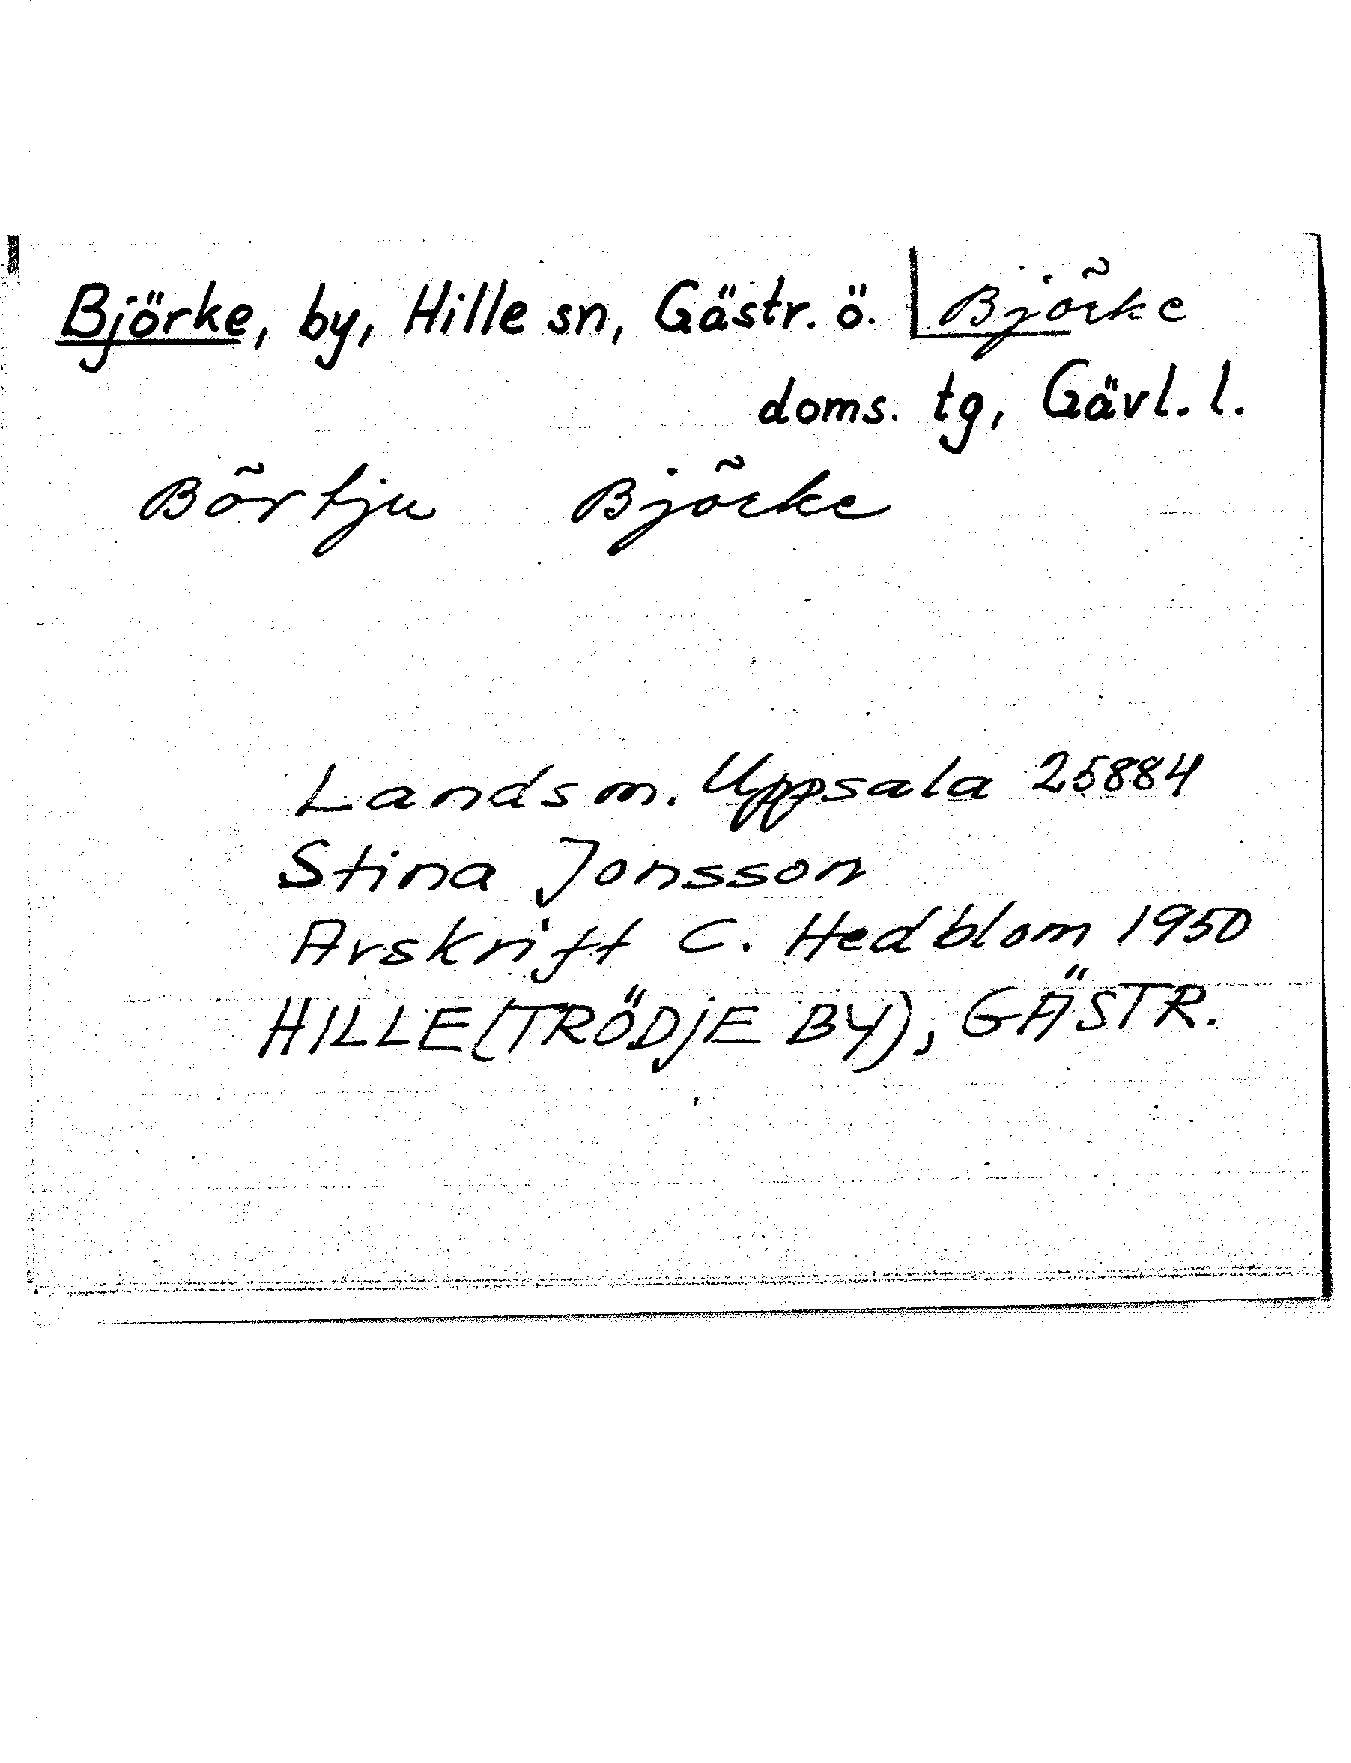 Björke, by, Hille sn, Gästr. ö. Bjõrke
doms. tg, Gävl. l.
Bõrtju Bjõrke
Landsm. Uppsala 25884
Stina Jonsson
Avskrift C. Hedblom 1950
HILLE (TRÖDJE BY), GÄSTR.